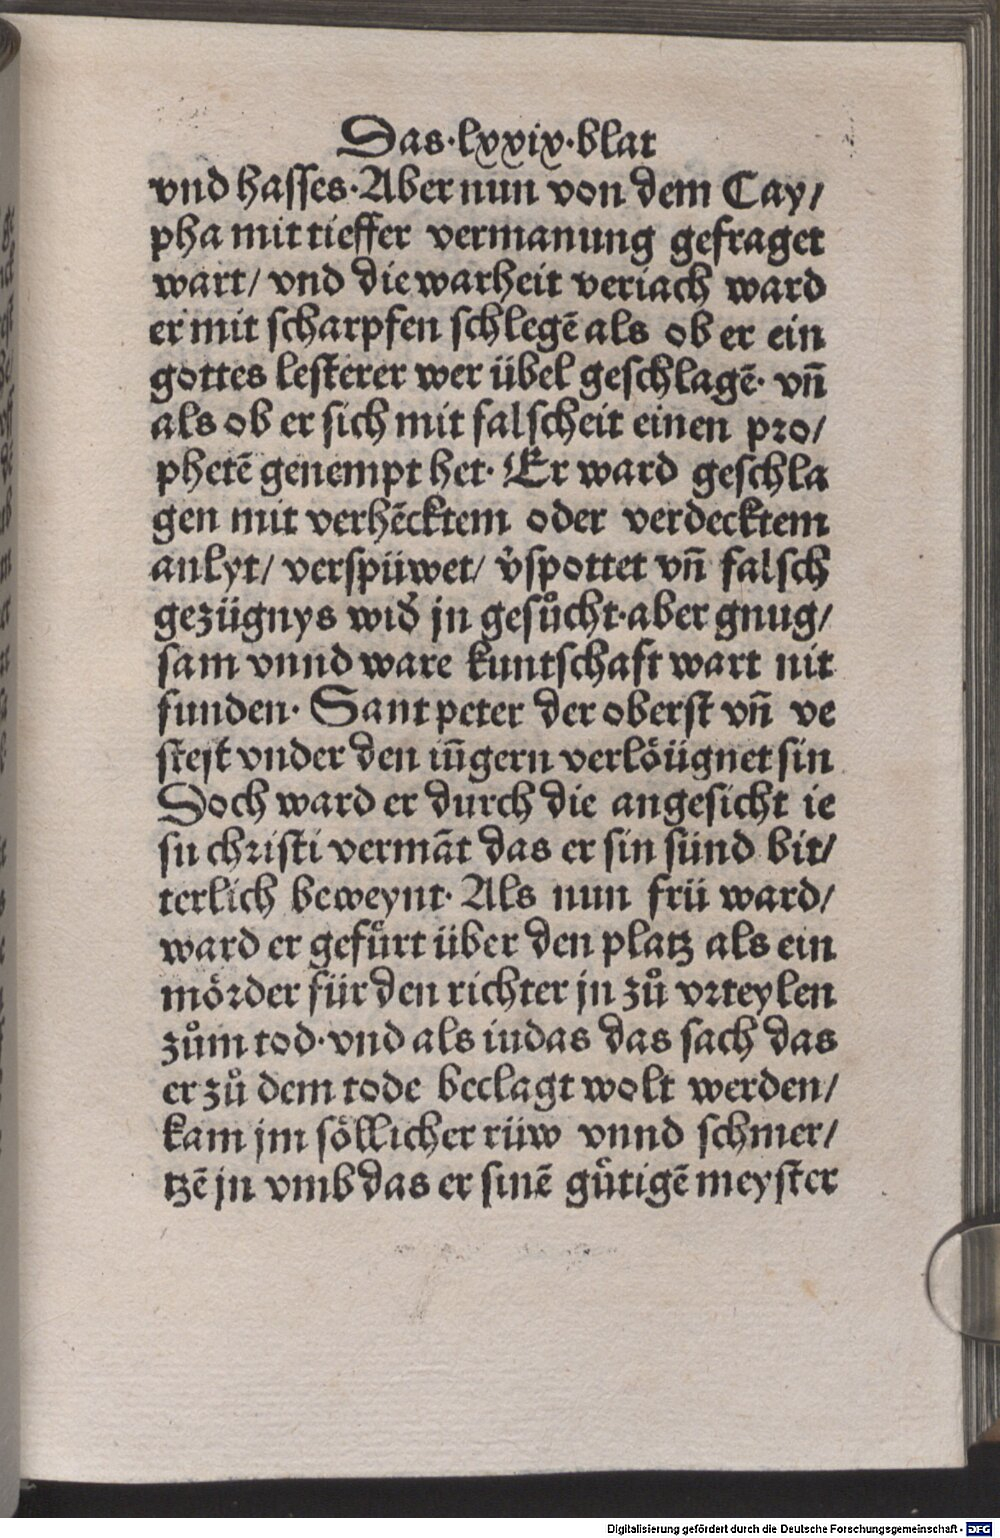 Das·lxxix·blat
vnd hasses·Aber nun von dem Cay/
pha mit tieffer vermanung gefraget
wart/ vnd die warheit veriach ward
er mit scharpfen schlegē als ob er ein
gottes lesterer wer übel geschlagē· vn̄
als ob er sich mit falscheit einen pro/
phetē genempt het· Er ward geschla
gen mit verhēcktem oder verdecktem
anlyt/ verspüwet/ v̉spottet vn̄ falsch
gezügnys wid̉ jn gesůcht·aber gnug/
sam vnnd ware kuntschaft wart nit
funden· Sant peter der oberst vn̄ ve
stest vnder den iūgern verlöügnet sin
Doch ward er durch die angesicht ie
su christi vermāt das er sin sünd bit/
terlich beweynt· Als nun frü ward/
ward er gefürt über den platz als ein
mörder für den richter jn zů vrteylen
zům tod·vnd als iudas das sach das
er zů dem tode beclagt wolt werden/
kam jm söllicher rüw vnnd schmer/
tzē jn vmb das er sinē gütigē meyster
Digitalisierung gefördert durch die Deutsche Forschungsgemeinschaft - DFG